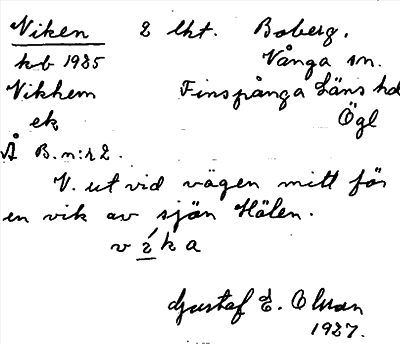 Viken 2 lht. Boberg.
kb 1935 Vånga sn.
Vikhem Finspånga Läns hd
ek Ögl
Å B.n:r 2.
V. ut vid vägen mitt för
en vik av sjön Hälen.
v í k a
Gustaf E. Olsson
1937.